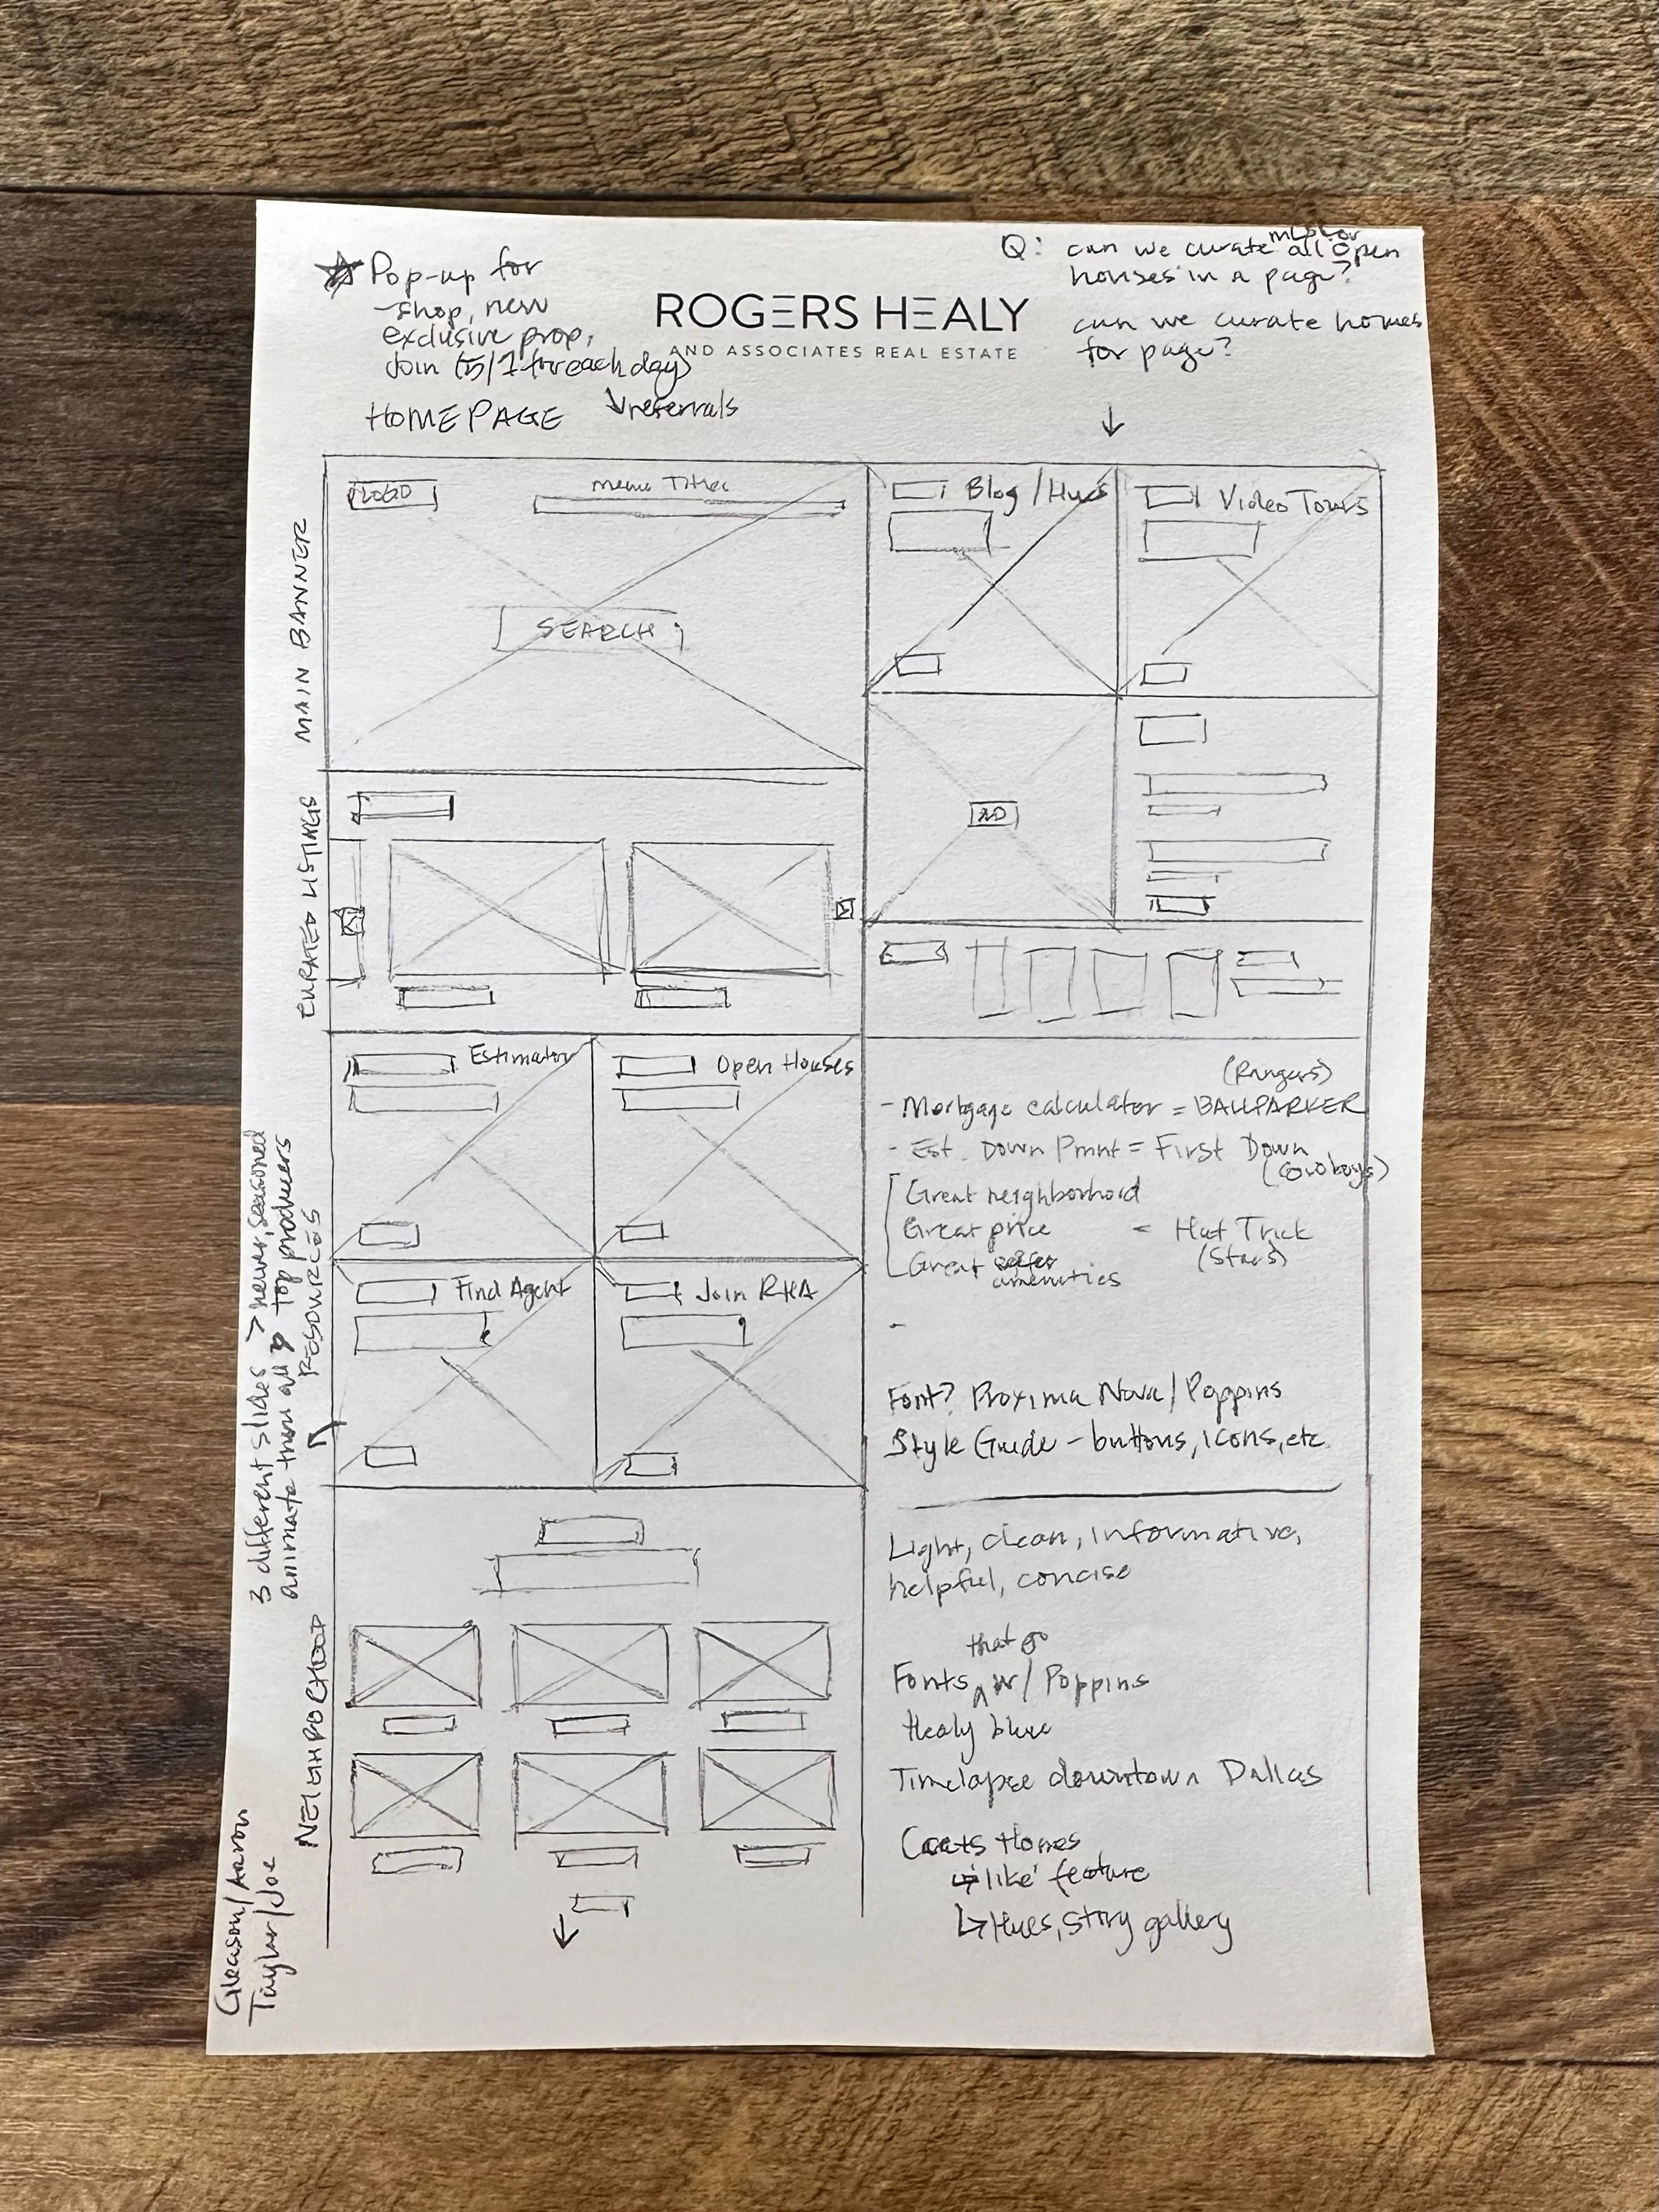 ☆ Pop-up for
- shop, new
exclusive prop,
Join (5/1 for each day)
↳ referrals
HOMEPAGE
ROGERS HEALY
AND ASSOCIATES REAL ESTATE
Q: can we curate all open
houses in a page?
can we curate homes
for page?
MAIN BANNER
LOGO
Menu Titles
SEARCH
Blog / Hues
Video Tours
AD
CURATED LISTINGS
RESOURCES
Estimator
Open Houses
Find Agent
Join RHA
3 different slides > newer, seasoned
animate them all top producers
NEIGHBORHOOD
Gleason / Aaron
Taylar / Joe
(Rangers)
- Mortgage calculator = BALLPARKER
- Est. Down Pmnt = First Down
(Cowboys)
Great neighborhood
Great price = Hat Trick
Great amenities (Stars)
-
Font? Proxima Nova / Poppins
Style Guide - buttons, icons, etc.
Light, clean, informative,
helpful, concise
that go
Fonts ^ w/ Poppins
Healy blue
Timelapse downtown Dallas
Homes
↳ 'like' feature
↳ Hues, story gallery